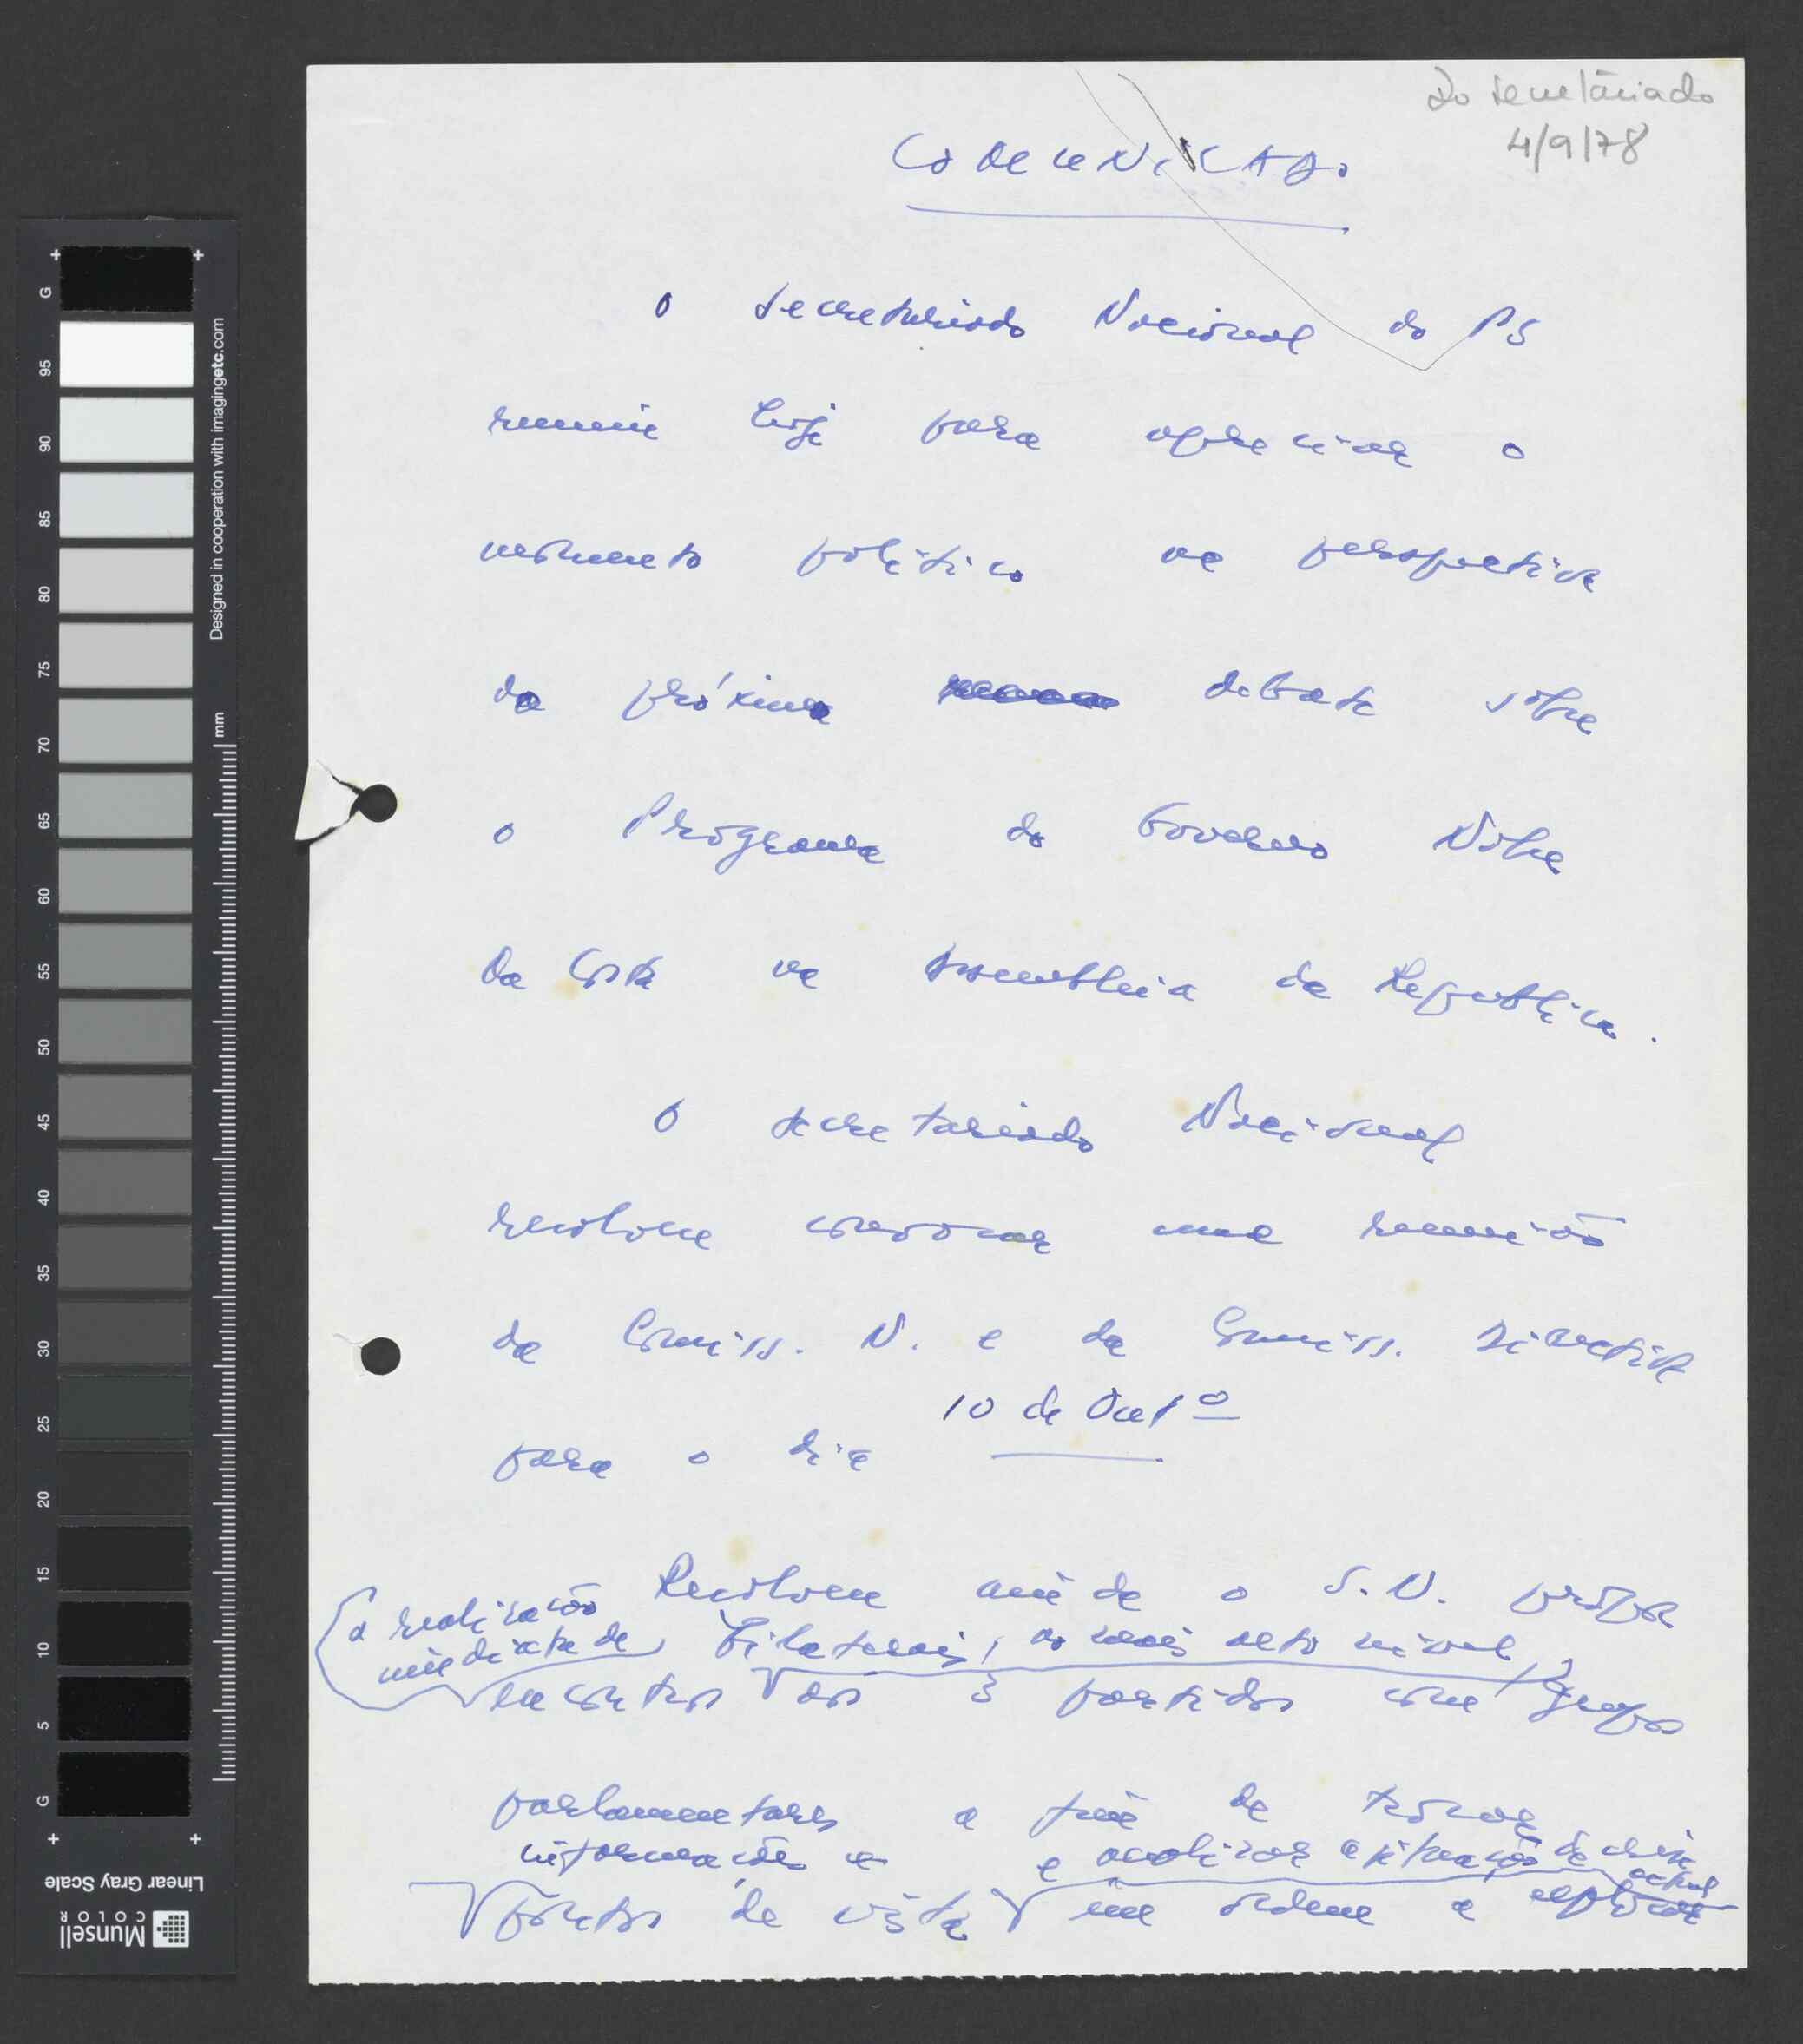 Do Secretariado
4/9/78
COMUNICADO
O Secretariado Nacional do PS
reuniu hoje para apreciar o
momento político na perspectiva
do próximo debate sobre
o Programa do Governo Nobre
da Costa na Assembleia da República.
O Secretariado Nacional
resolveu convocar uma reunião
da Comiss. N. e da Comiss. Directiva
para o dia 10 de Outº
Resolveu ainda o S.N. propor
a realização
imediata de bilaterais, ao mais alto nível,
encontros aos 3 partidos com grupos
parlamentares a fim de trocar
informações e e analizar a situação de crise
actual
pontos de vista em ordem a explorar
G
95
90
85
80
75
70
65
60
55
50
45
40
35
30
25
20
15
10
5
G
mm
Designed in cooperation with imagingetc.com
Linear Gray Scale
Munsell
COLOR